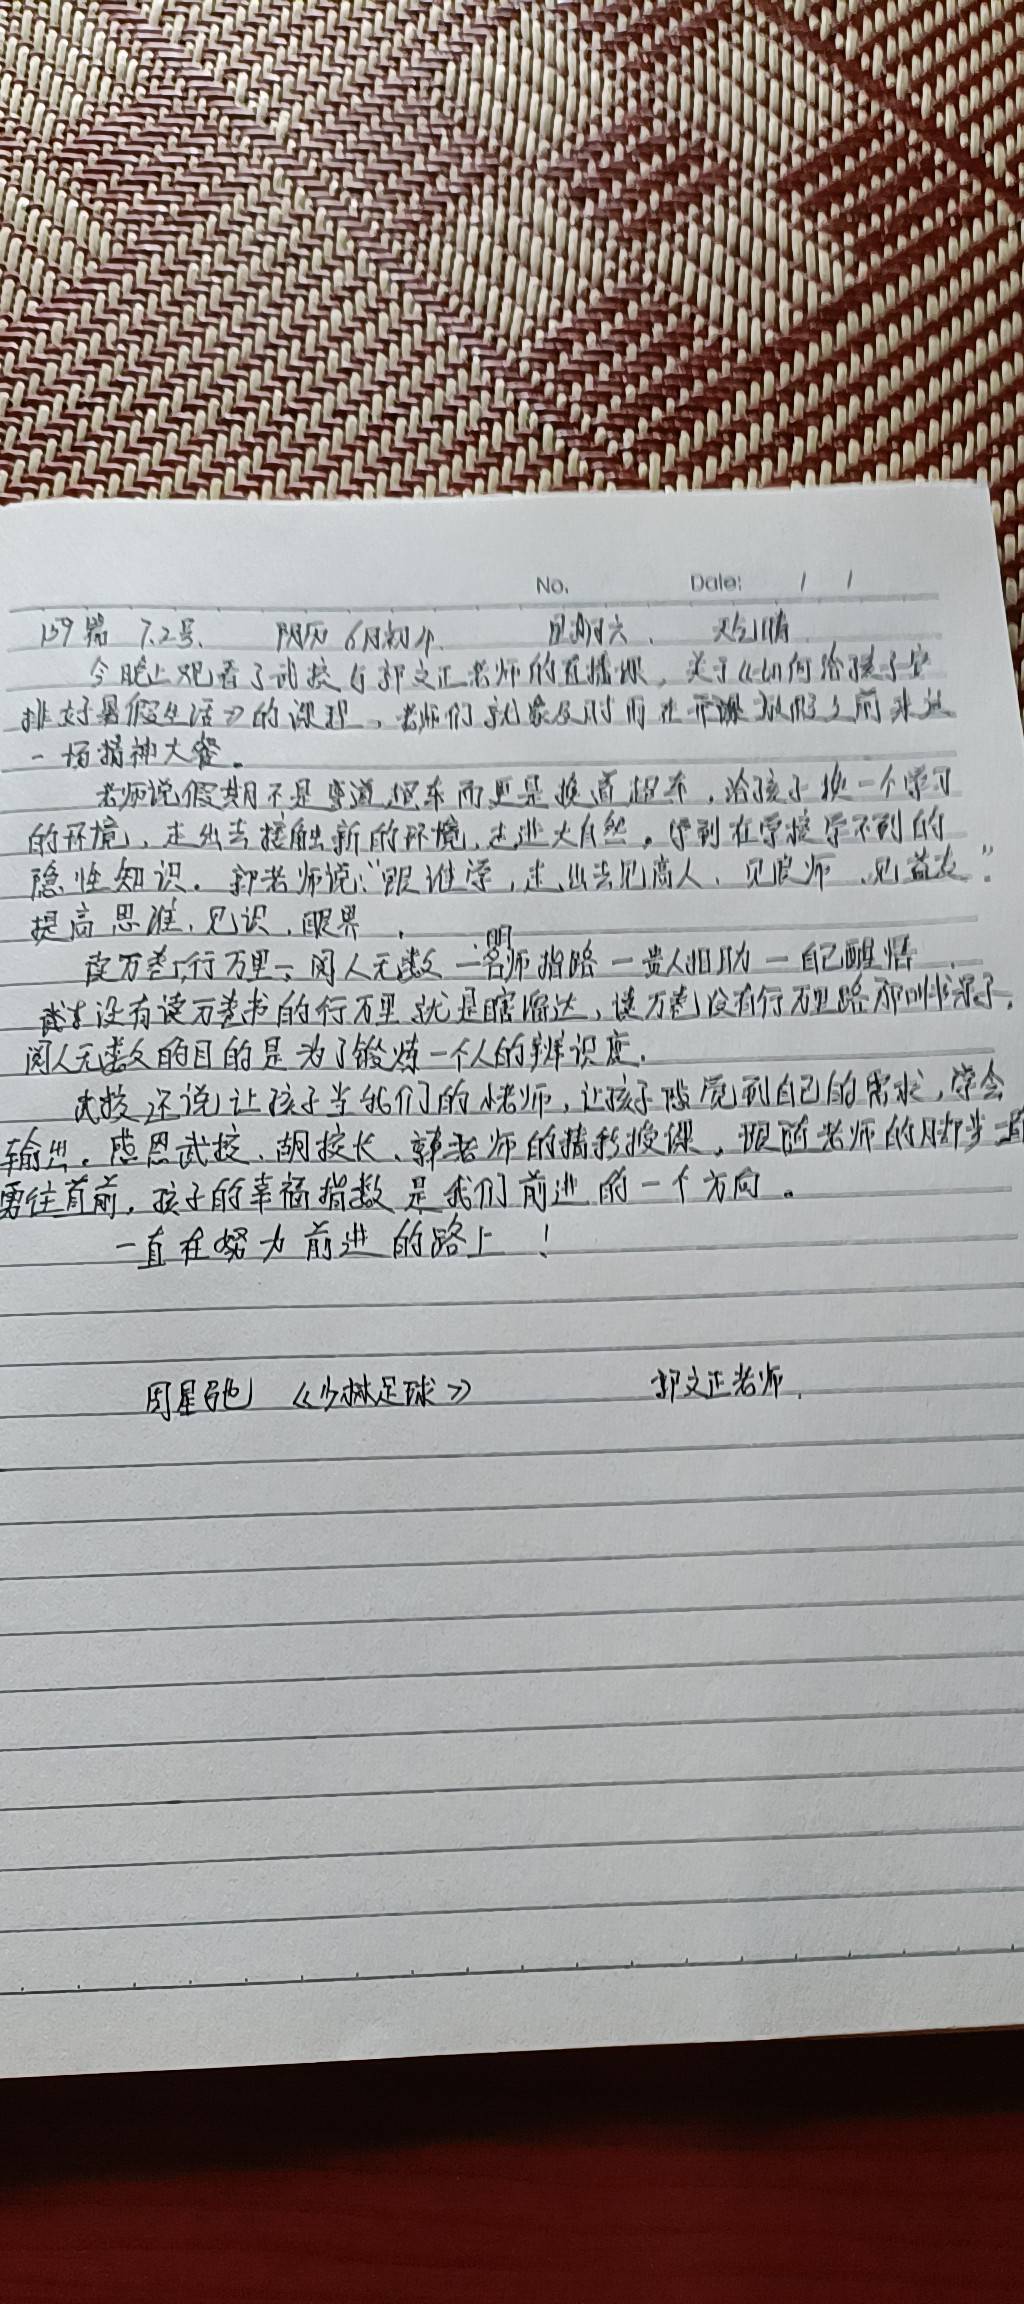 No.    Date:    /    /
159篇  7.2号.  阴历 6月初4.  星期六.  天气:晴
今晚上观看了武校与郭文正老师的直播课,关于《如何给孩子安
排好暑假生活》的课程,老师们就象及时雨在放假之前来这
一场精神大餐。
老师说假期不是弯道超车而更是换道超车,给孩子换一个学习
的环境,走出去接触新的环境,走进大自然。学到在学校学不到的
隐性知识。郭老师说:“跟谁学,走出去见高人、见良师、见益友”.
提高思维、见识、眼界.
读万卷行万里一阅人无数一明师指路一贵人相助一自己醒悟
没有读万卷书的行万里就是瞎溜达,读万卷没有行万里路那叫书呆子.
阅人无数的目的是为了锻炼一个人的辨识度.
武校还说让孩子当我们的小老师,让孩子感觉到自己的需求,学会
输出。感恩武校、胡校长、郭老师的精彩授课。跟随老师的脚步一直
勇往直前,孩子的幸福指数是我们前进的一个方向。
一直在努力前进的路上!
周星驰 《少林足球》  郭文正老师.